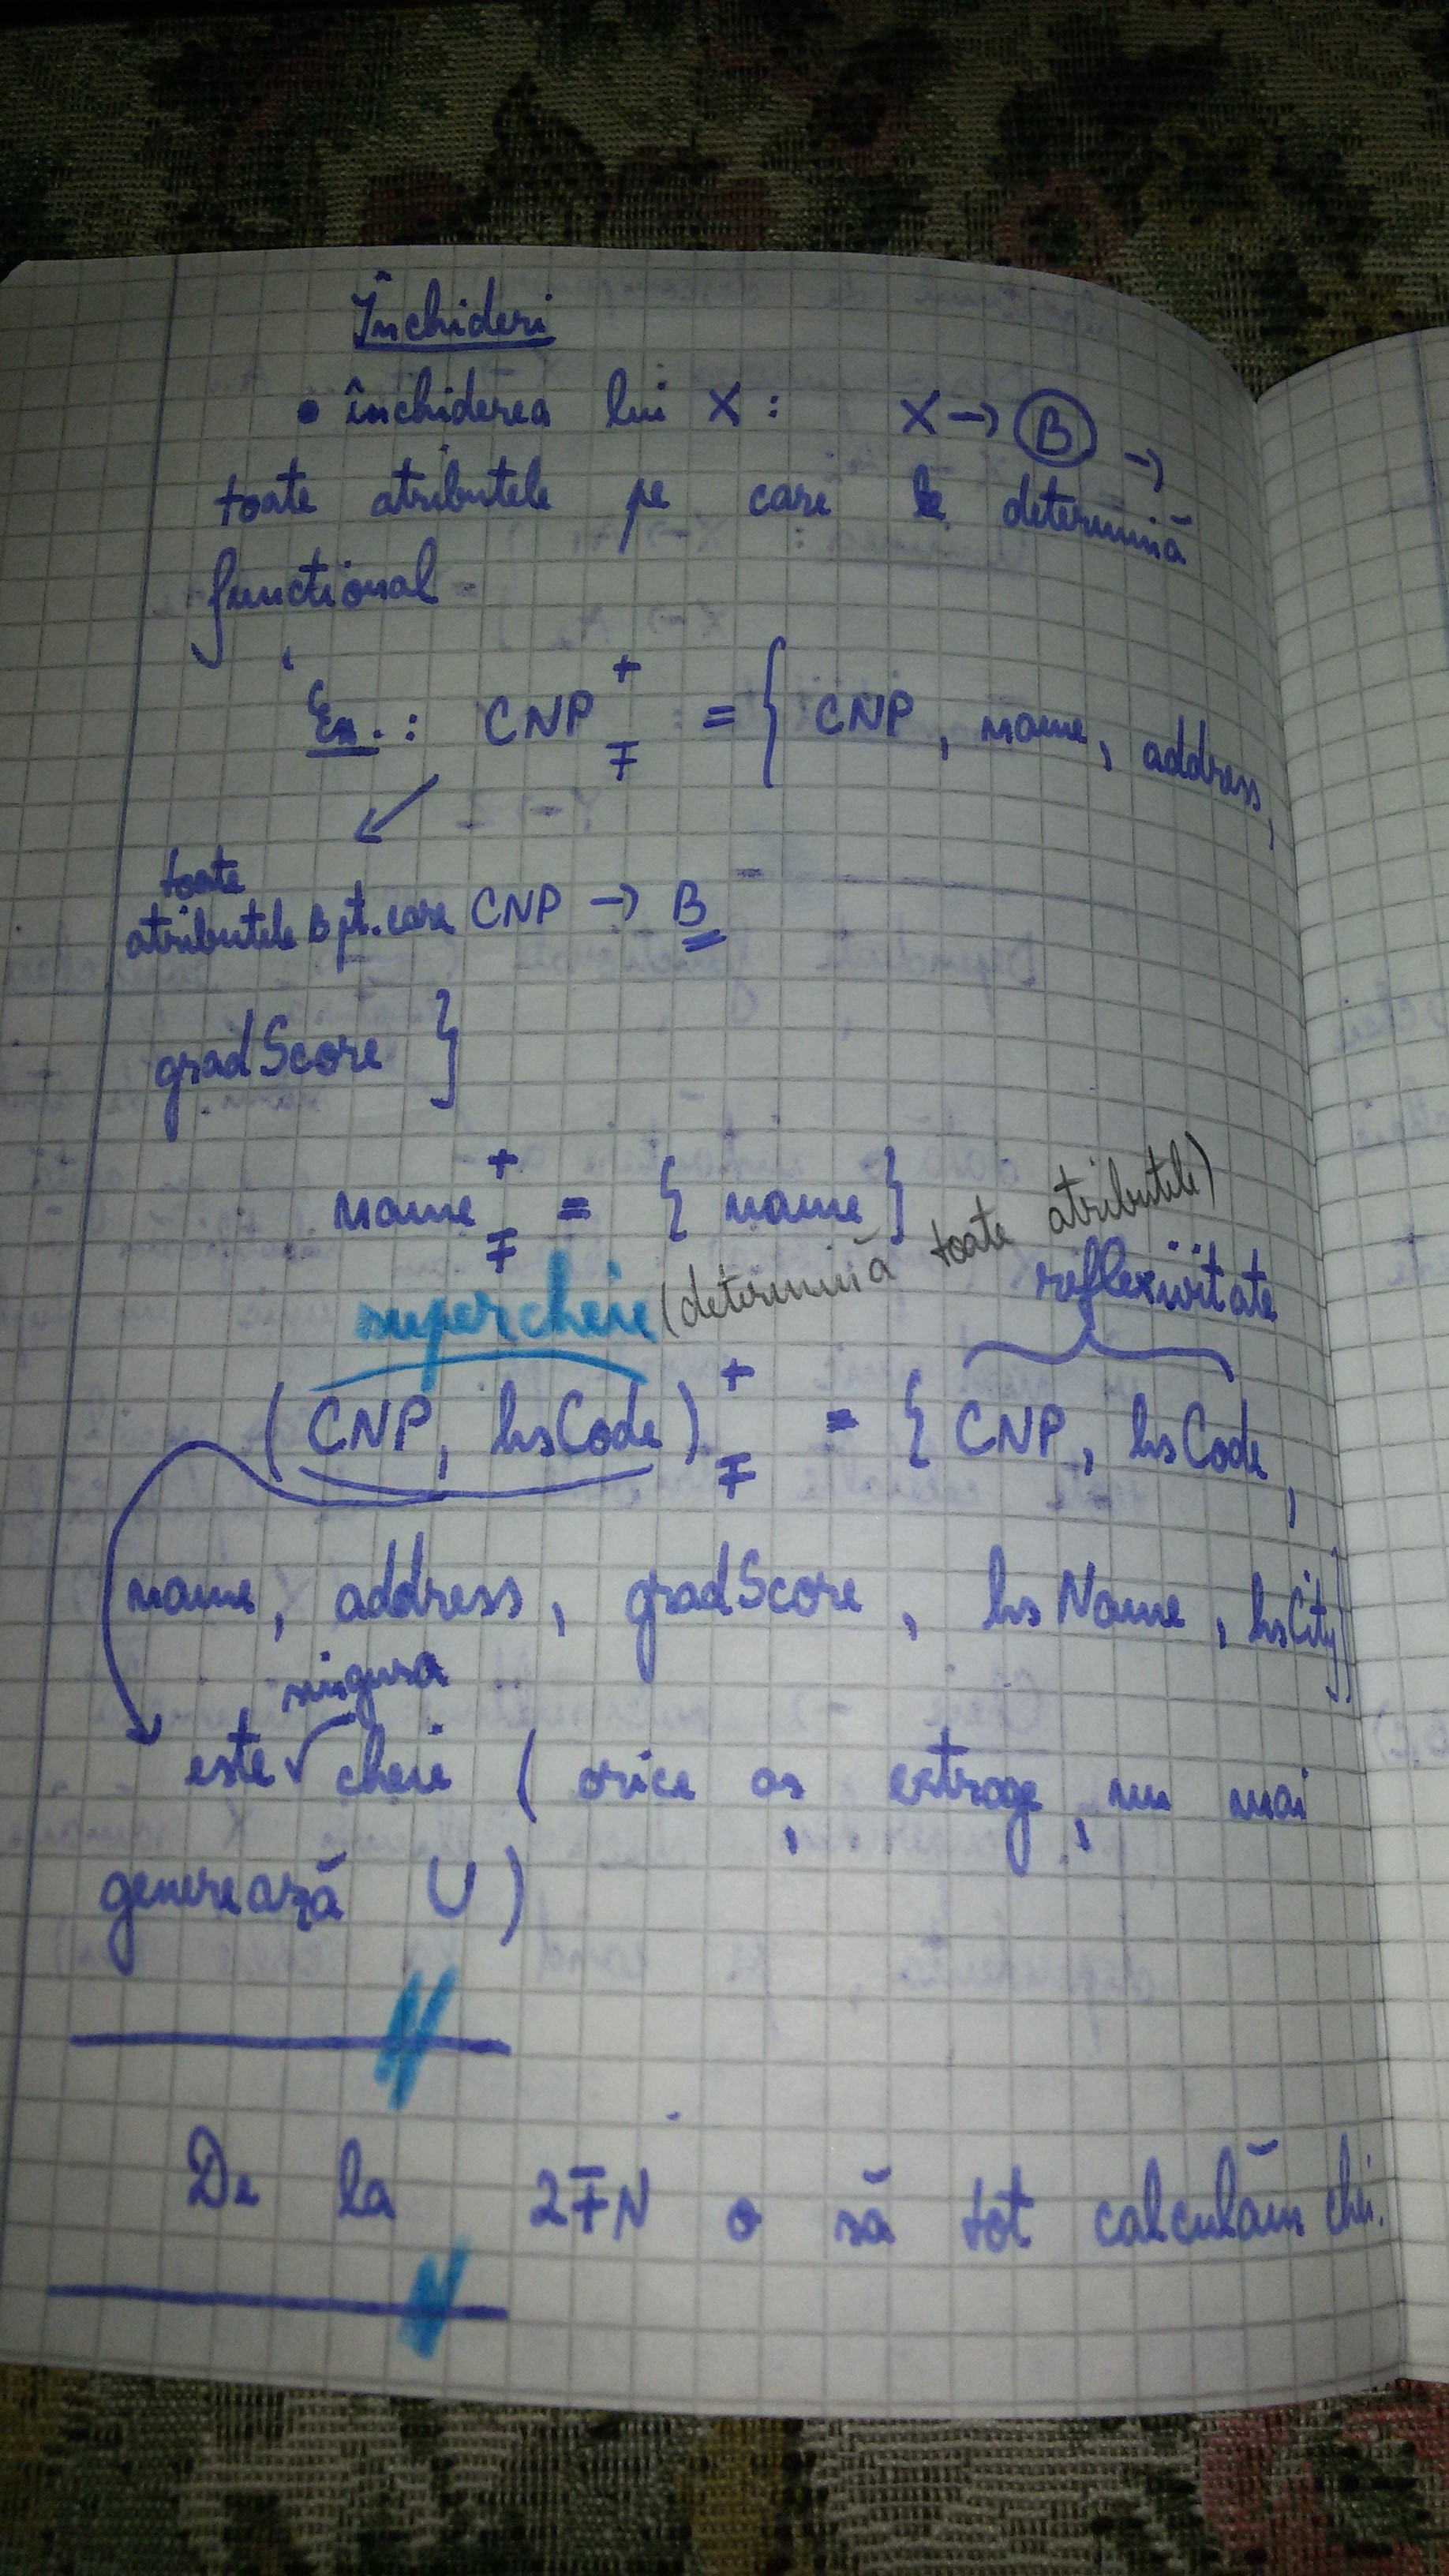 Închideri
• închiderea lui X: X → B →
toate atributele pe care le determină
funcțional.
Ex.: CNP⁺_F = { CNP, name, address,
toate
atributele B pt. care CNP → B
gradScore }
name⁺_F = { name }
supercheie (determină toate atributele)
reflexivitate
(CNP, hsCode)⁺_F = { CNP, hsCode,
name, address, gradScore, hsName, hsCity}
singura
este √ cheie ( orice aș extrage, nu mai
generează U )
De la 2FN o să tot calculăm chei.